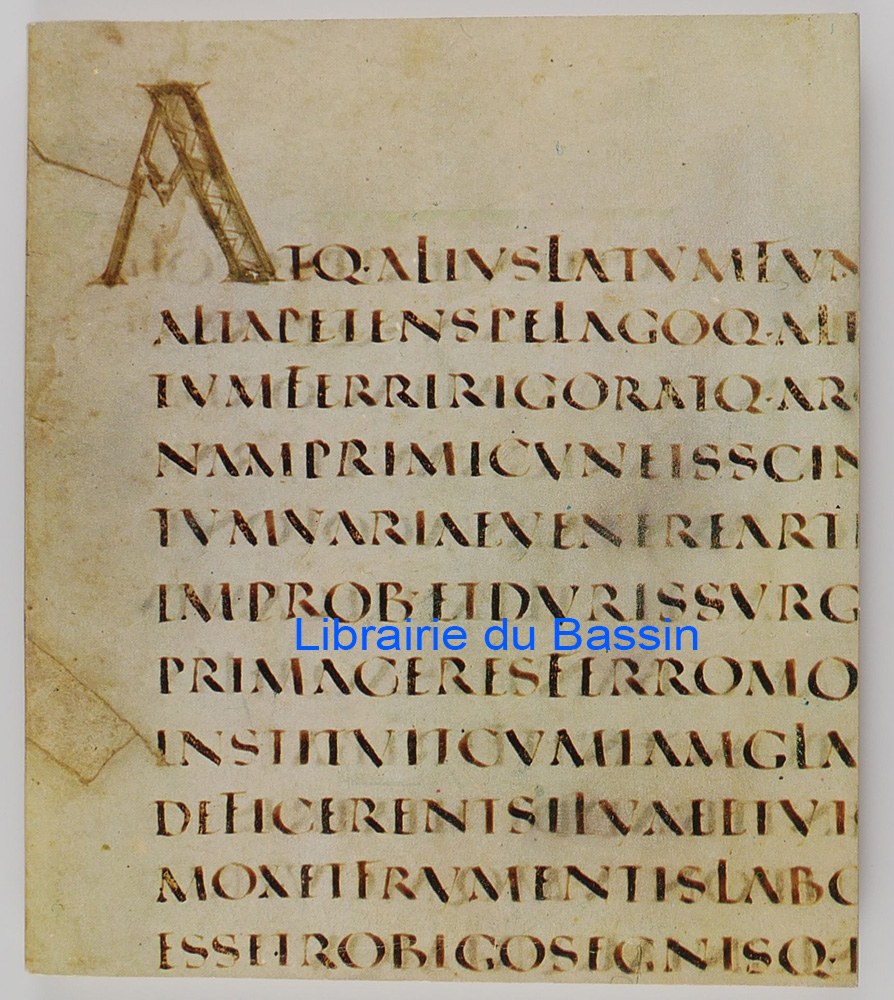 ATQ·ALIVSLATVMFVN
ALTAPETENSPELAGOQ·ALI
TVMFERRIRIGORATQ·ARG
NAMPRIMICVNEISSCIN
TVMVARIAEVENEREARTE
IMPROB·ETDVRISSVRG
Librairie du Bassin
PRIMACERESFERROMO
INSTITVITCVMIAMGLA
DEFICERENTSILVAEETVIC
MOXETFRVMENTISLABO
ESSETROBIGOSEGNISQ·I